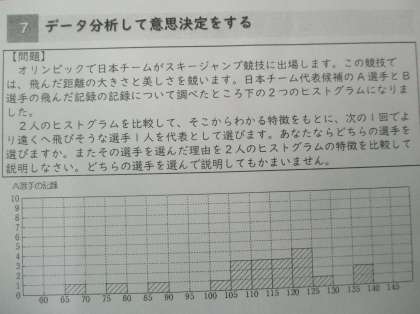 7 データ分析して意思決定をする
【問題】
オリンピックで日本チームがスキージャンプ競技に出場します。この競技で
は、飛んだ距離の大きさと美しさを競います。日本チーム代表候補のA選手とB
選手の飛んだ記録の記録について調べたところ下の2つのヒストグラムになりま
した。
2人のヒストグラムを比較して、そこからわかる特徴をもとに、次の1回でよ
り遠くへ飛びそうな選手1人を代表として選びます。あなたならどちらの選手を
選びますか。またその選手を選んだ理由を2人のヒストグラムの特徴を比較して
説明しなさい。どちらの選手を選んで説明してもかまいません。
A選手の記録
10
9
8
7
6
5
4
3
2
1
0
60 65 70 75 80 85 90 95 100 105 110 115 120 125 130 135 140 145